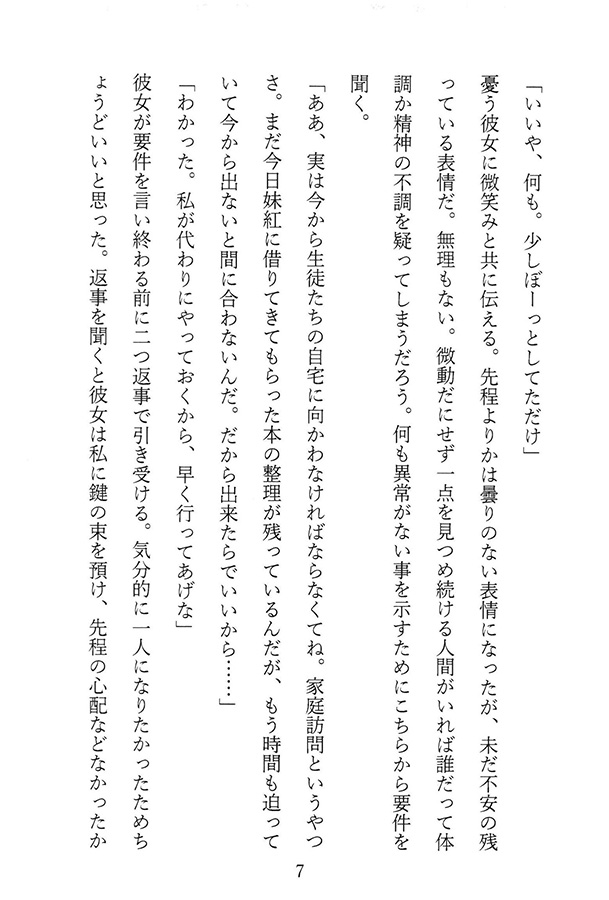 「いいや、何も。少しぼーっとしてただけ」
憂う彼女に微笑みと共に伝える。先程よりかは曇りのない表情になったが、未だ不安の残
っている表情だ。無理もない。微動だにせず一点を見つめ続ける人間がいれば誰だって体
調か精神の不調を疑ってしまうだろう。何も異常がない事を示すためにこちらから要件を
聞く。
「ああ、実は今から生徒たちの自宅に向かわなければならなくてね。家庭訪問というやつ
さ。まだ今日妹紅に借りてきてもらった本の整理が残っているんだが、もう時間も迫って
いて今から出ないと間に合わないんだ。だから出来たらでいいから……」
「わかった。私が代わりにやっておくから、早く行ってあげな」
彼女が要件を言い終わる前に二つ返事で引き受ける。気分的に一人になりたかったためち
ょうどいいと思った。返事を聞くと彼女は私に鍵の束を預け、先程の心配などなかったか
7